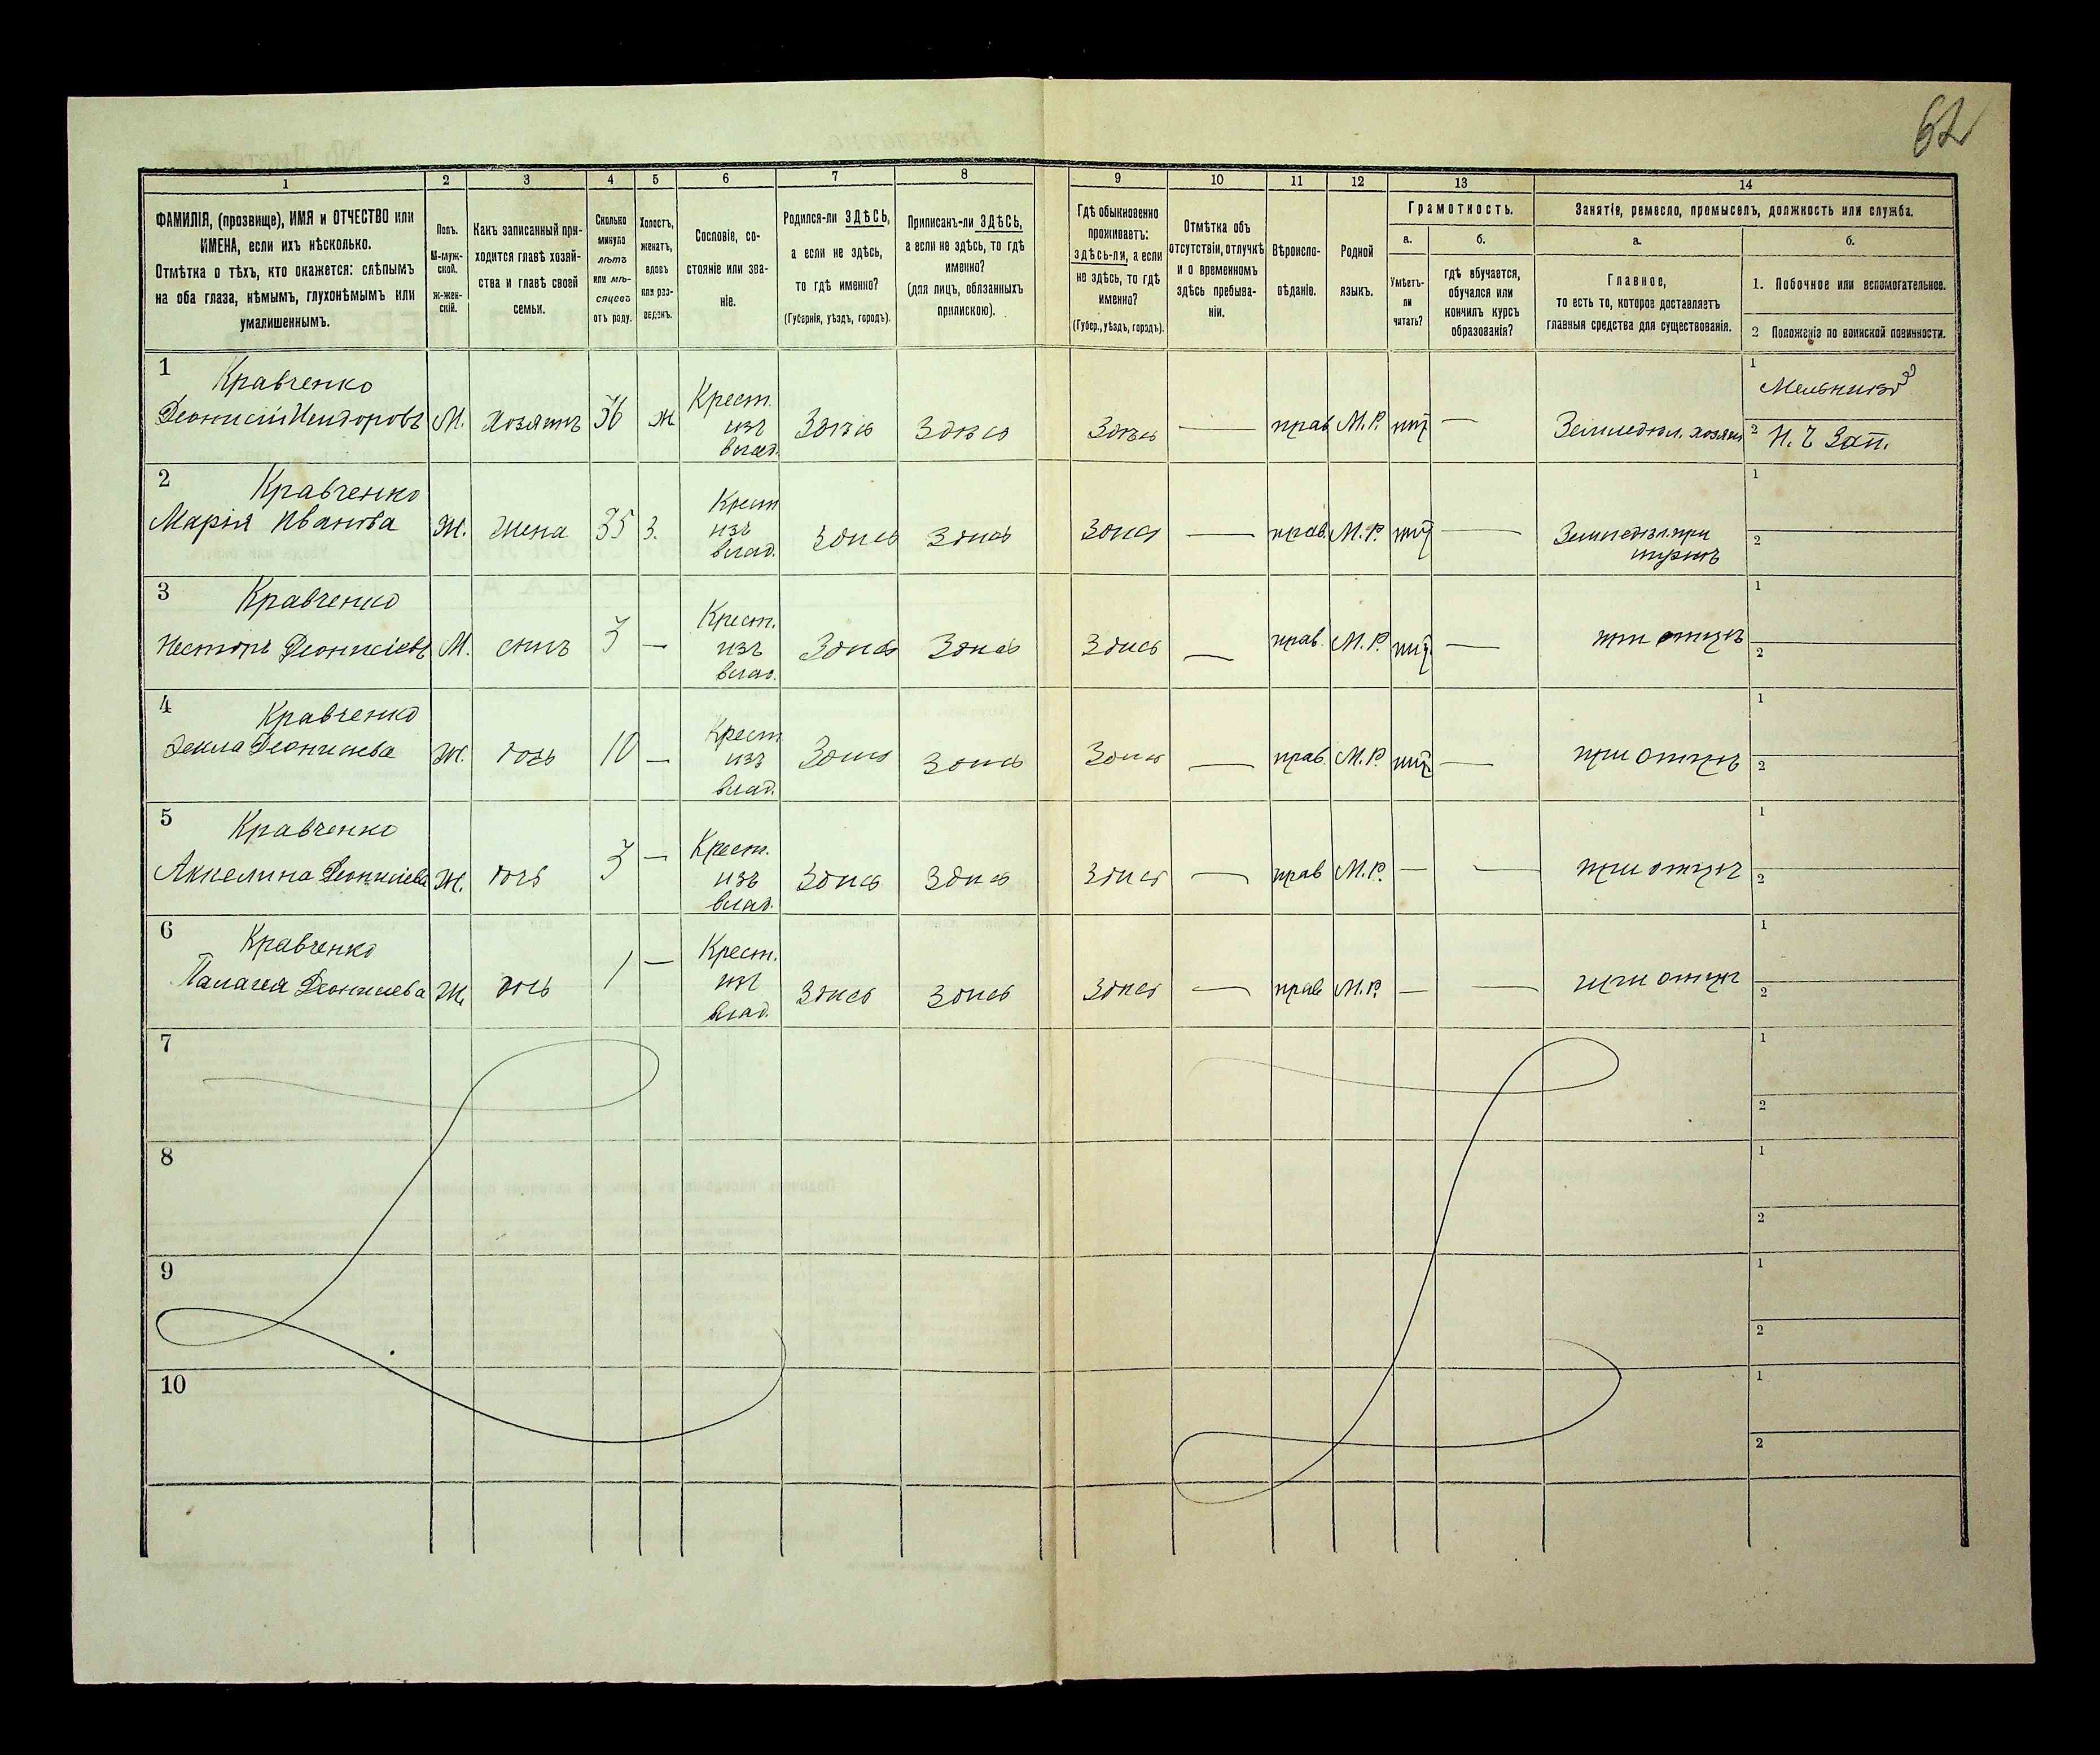 62
1 2 3 4 5 6 7 8 9 10 11 12 13 14
ФАМИЛІЯ, (прозвище), ИМЯ и ОТЧЕСТВО или
ИМЕНА, если ихъ нѣсколько.
Отмѣтка о тѣхъ, кто окажется: слѣпымъ
на оба глаза, нѣмымъ, глухонѣмымъ или
умалишеннымъ.
Полъ.
М-муж-
ской.
Ж-жен-
скій.
Какъ записанный при-
ходится главѣ хозяй-
ства и главѣ своей
семьи.
Сколько
минуло
лѣтъ
или мѣ-
сяцевъ
отъ роду.
Холостъ,
женатъ,
вдовъ
или раз-
веденъ.
Сословіе, со-
стояніе или зва-
ніе.
Родился-ли ЗДѢСЬ,
а если не здѣсь,
то гдѣ именно?
(Губернія, уѣздъ, городъ).
Приписанъ-ли ЗДѢСЬ,
а если не здѣсь, то гдѣ
именно?
(для лицъ, обязанныхъ
припискою).
Гдѣ обыкновенно
проживаетъ:
здѣсь-ли, а если
не здѣсь, то гдѣ
именно?
(Губер., уѣздъ, городъ).
Отмѣтка объ
отсутствіи, отлучкѣ
и о временномъ
здѣсь пребыва-
ніи.
Вѣроиспо-
вѣданіе.
Родной
языкъ.
Грамотность.
а.
Умѣетъ-
ли
читать?
б.
гдѣ обучается,
обучался или
кончилъ курсъ
образованія?
Занятіе, ремесло, промыселъ, должность или служба.
а.
Главное,
то есть то, которое доставляетъ
главныя средства для существованія.
б.
1. Побочное или вспомогательное.
2 Положеніе по воинской повинности.
1 Кравченко
Деонисій М. хозяинъ 36 ж Крест. изъ влад. Здѣсь Здѣсь Здѣсь — прав М.Р. — Земледѣл. хозяин
1
2 Н. Ч Зап.
2 Кравченко
Марія Иванова Ж. жена 35 З. Крест изъ влад. Здѣсь Здѣсь Здѣсь — прав. М.Р. — Земледѣл. при
мужѣ
1
2
3 Кравченко
Несторъ Деонисіевъ М. сынъ — Крест. изъ влад. Здѣсь Здѣсь Здѣсь — прав. М.Р. — при отцѣ
1
2
4 Кравченко
Фекла Деонисіева Ж. дочь 10 — Крест изъ влад. Здѣсь Здѣсь Здѣсь — прав. М.Р. — при отцѣ
1
2
5 Кравченко
Аккелина Деонисіева Ж. дочь 3 — Крест. изъ влад. Здѣсь Здѣсь Здѣсь — прав М.Р. — — при отцѣ
1
2
6 Кравченко
Палагея Деонисіева Ж. дочь 1 — Крест. изъ влад. Здѣсь Здѣсь Здѣсь — прав М.Р. — — при отцѣ
1
2
7
1
2
8
1
2
9
1
2
10
1
2